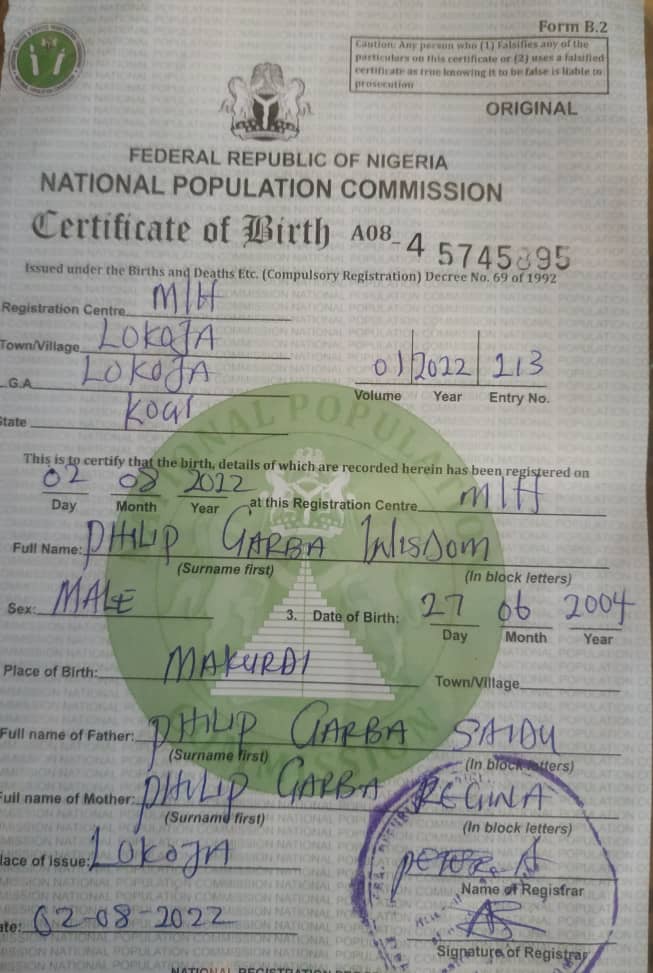 Form B.2
Caution: Any person who (1) Falsifies any of the
particulars on this certificate or (2) uses a falsified
certificate as true knowing it to be false is liable to
prosecution
ORIGINAL
FEDERAL REPUBLIC OF NIGERIA
NATIONAL POPULATION COMMISSION
Certificate of Birth A08- 4 5745895
Issued under the Births and Deaths Etc. (Compulsory Registration) Decree No. 69 of 1992
Registration Centre MIH
Town/Village LOKOJA
L.G.A LOKOJA
01 2022 213
Volume Year Entry No.
State KOGI
This is to certify that the birth, details of which are recorded herein has been registered on
02 08 2022 at this Registration Centre MIH
Day Month Year
Full Name: PHILIP GARBA WISDOM
(Surname first) (In block letters)
Sex: MALE 3. Date of Birth: 27 06 2004
Day Month Year
Place of Birth: MAKURDI Town/Village
Full name of Father: PHILIP GARBA SAIDU
(Surname first) (In block letters)
Full name of Mother: PHILIP GARBA REGINA
(Surname first) (In block letters)
lace of issue: LOKOJA PETER A
Name of Registrar
ate: 02-08-2022
Signature of Registrar